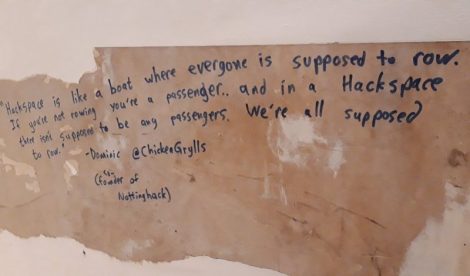 "Hackspace is like a boat where everyone is supposed to row.
If you're not rowing you're a passenger.. and in a Hackspace
there isn't supposed to be any passengers. We're all supposed
to row." -Dominic @ChickenGrylls
(founder of
Nottinghack)